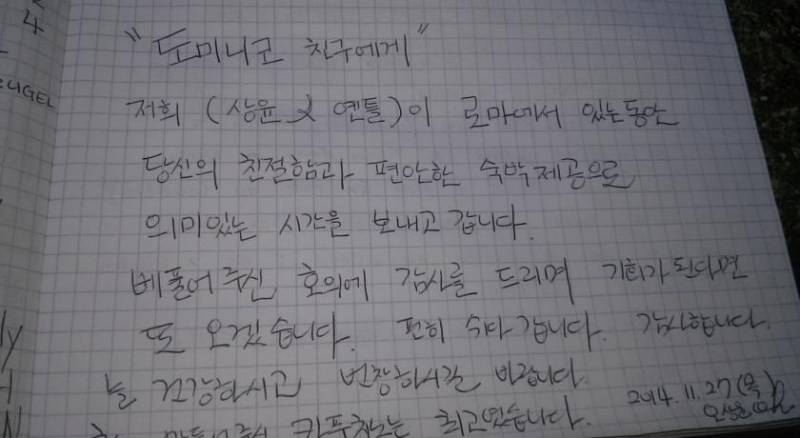 4
"도미니코 친구에게"
UGEL
저희 (상윤 & 옌틀)이 로마에서 있는동안
당신의 친절함과 편안한 숙박제공으로
의미있는 시간을 보내고 갑니다.
베풀어주신 호의에 감사를 드리며 기회가 된다면
또 오겠습니다. 편히 쉬다 갑니다. 감사합니다.
늘 건강하시고 번창하시길 바랍니다.
카푸치노는 최고였습니다.
2014.11.27(목)